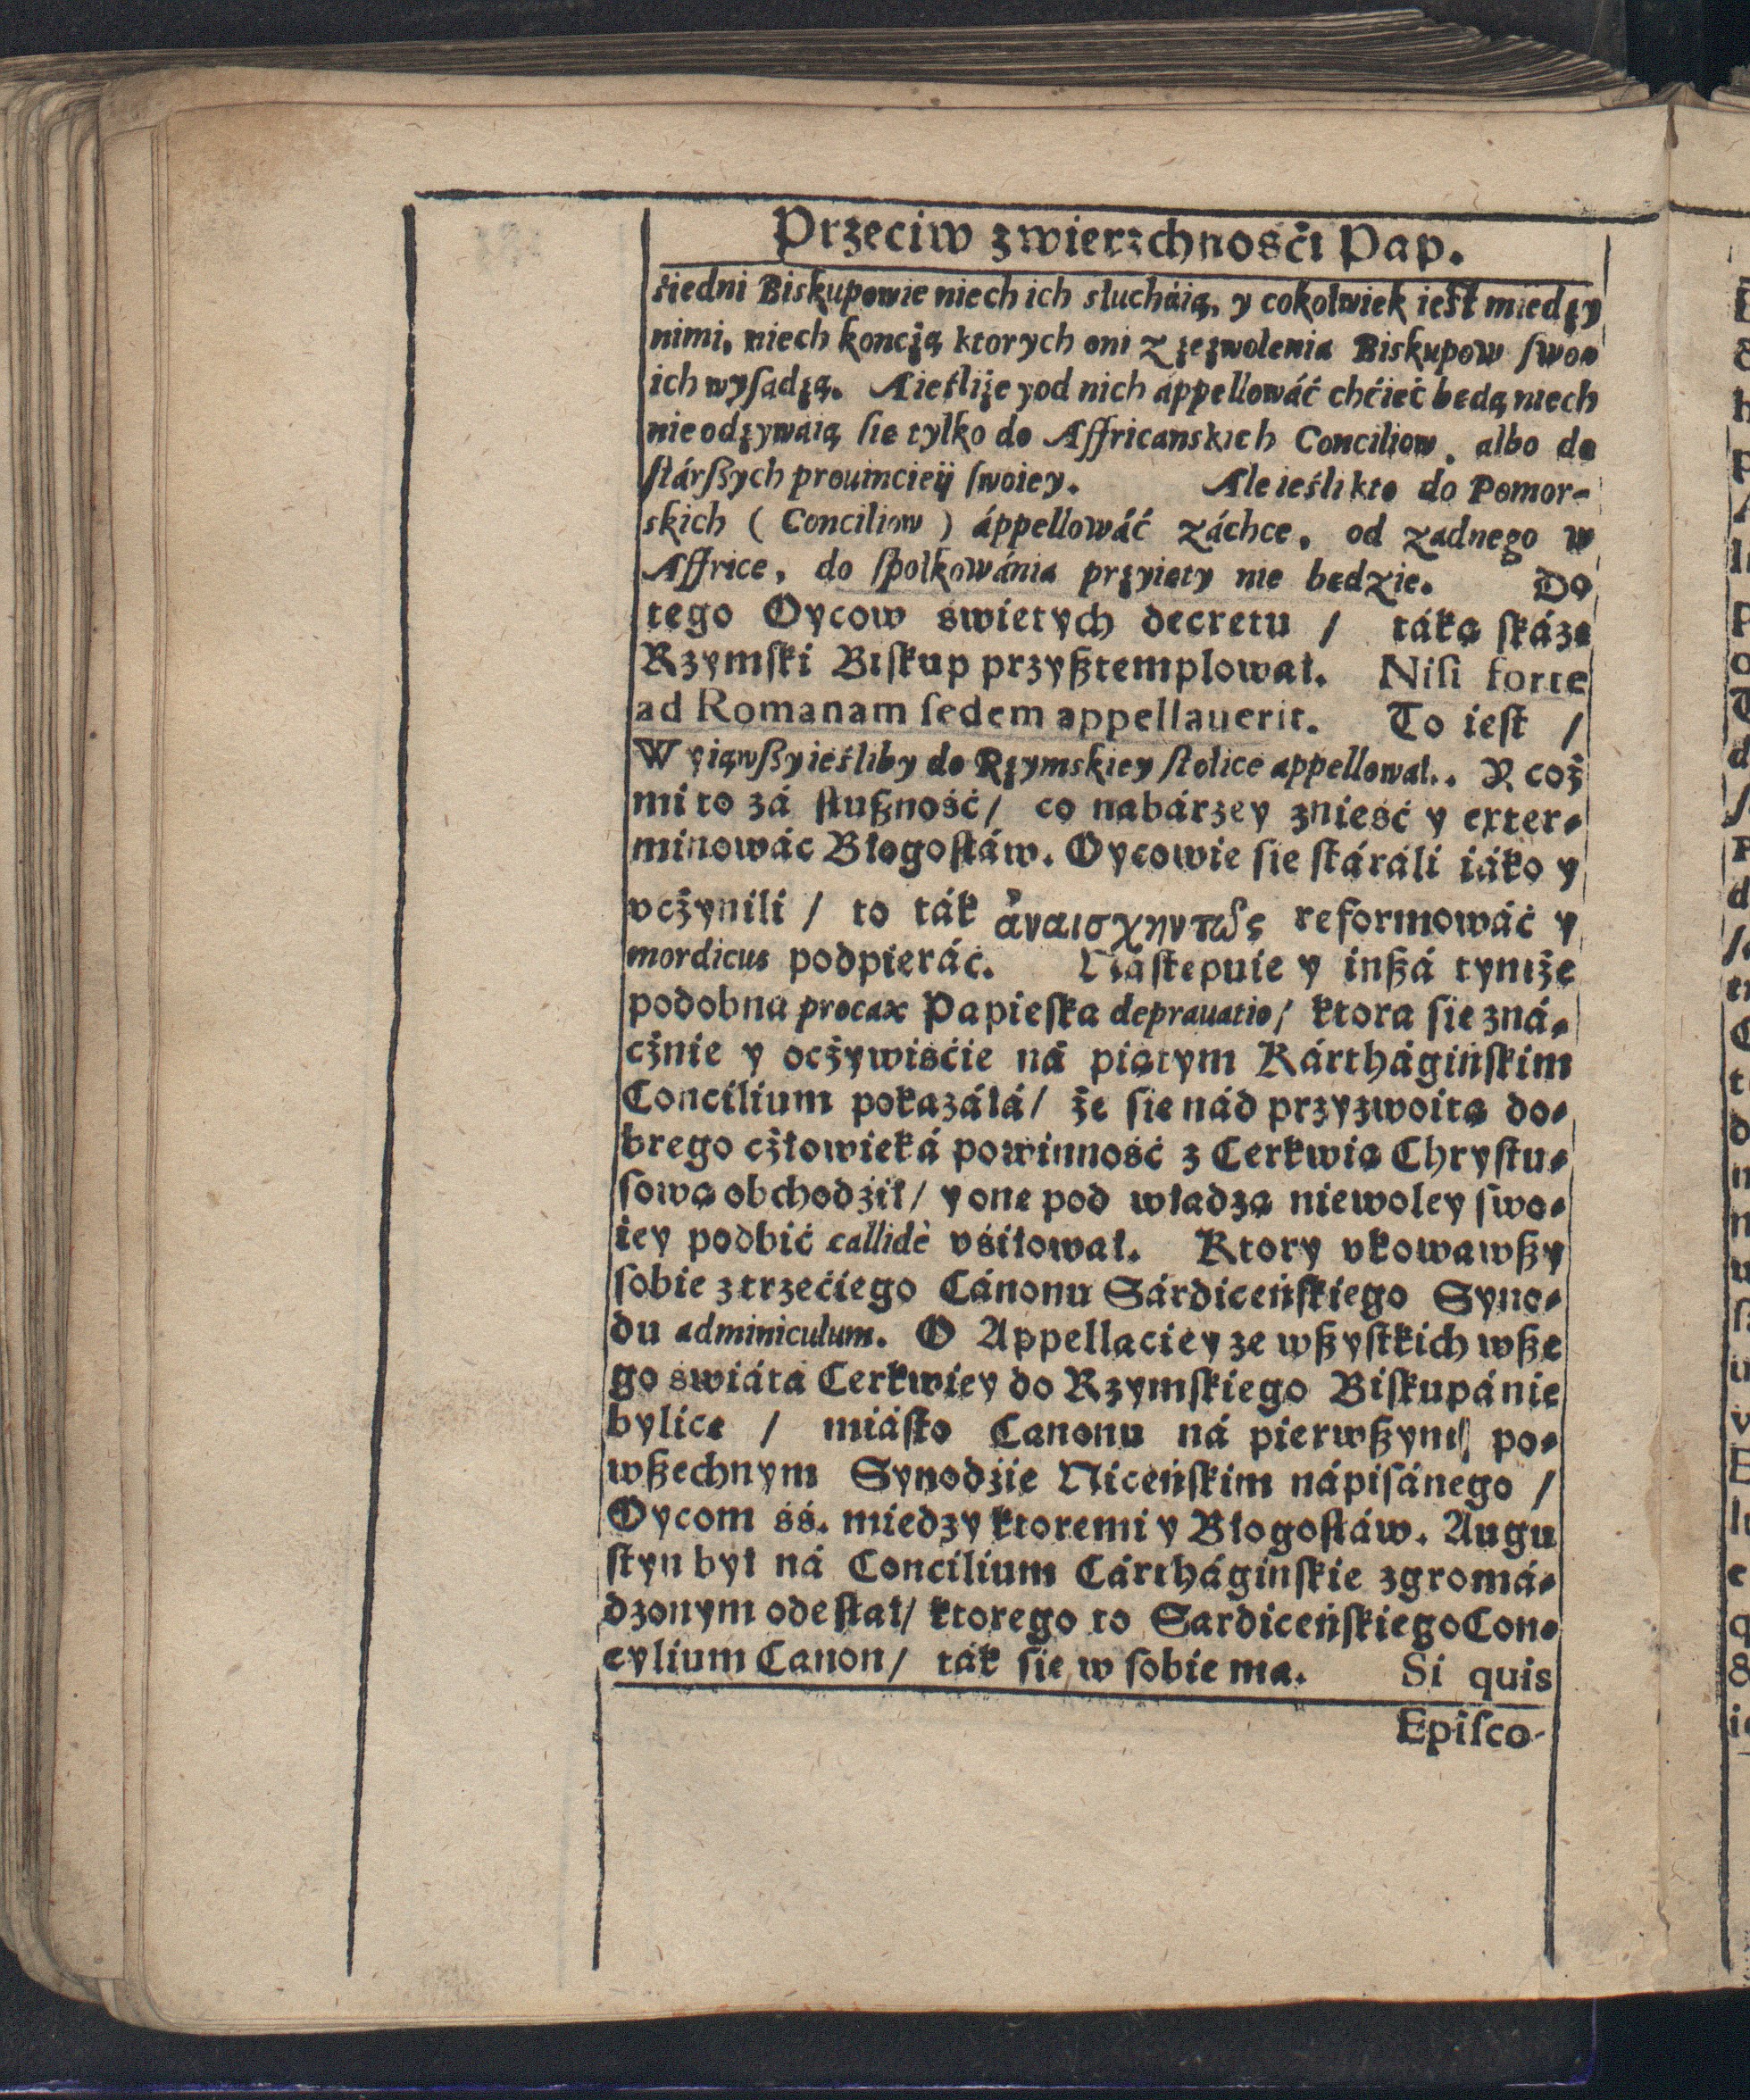 Przeciw zwierzchnosći Pap.
śiedni Biskupowie niech ich słucháią, y cokolwiek iest międży
nimi, niech końcżą ktorych oni z żeżwolenia Biskupow ſwo-
ich wyſadżą. Aieſliże y od nich áppellowáć chćieć będą niech
nie odżywáią ſie tylko do Affricanskich Conciliow, albo do
ſtárßych prouincieÿ ſwoiey. Ale ieśli kto do Pomor-
skich (Conciliow) áppellowáć záchce, od zadnego w
Affrice, do ſpołkowánia prżyięty nie będzie. Do
tego Oycow świetych decretu / táką ſkázę
Rzymſki Biſkup przyßtemplował. Niſi forte
ad Romanam ſedem appellauerit. To ieſt /
Wyiąwßy ieśliby do Rżymskiey ſtolice appellował.. Y coż
mi to zá ſłußność / co nabárzey znieść y exter-
minowác Błogoſłáw. Oycowie ſie ſtáráli iáko y
vcżynili / to ták ἀναισχηντῶς reformowáć y
mordicus podpieráć. Náſtępuie y inßá tymże
podobna procax Papieſka deprauatio / ktora ſie zná-
cżnie y ocżywisćie ná piątym Kárthágińſkim
Concilium pokazáłá / że ſie nád przyzwoitą do-
brego cżłowieká powinność z Cerkwią Chryſtu-
ſową obchodźił / y onę pod władzą niewoley ſwo-
iey podbić callidè vśiłował. Ktory vkowawßy
ſobie z trzećiego Cánonu Sárdiceńſkiego Syno-
du adminiculum. O Appellaciey ze wßyſtkich wße
go świátá Cerkwiey do Rzymſkiego Biſkupá nie
bylice / miáſto Canonu ná pierwßym po-
wßechnym Synodźie Niceńſkim nápiſánego /
Oycom śś. miedzy ktoremi y Błogoſłáw. Augu
ſtyn był ná Concilium Cárthágińſkie zgromá-
dzonym odeſłał / ktorego to Sardiceńſkiego Con-
cylium Canon / ták ſie w ſobie ma. Si quis
Epiſco-